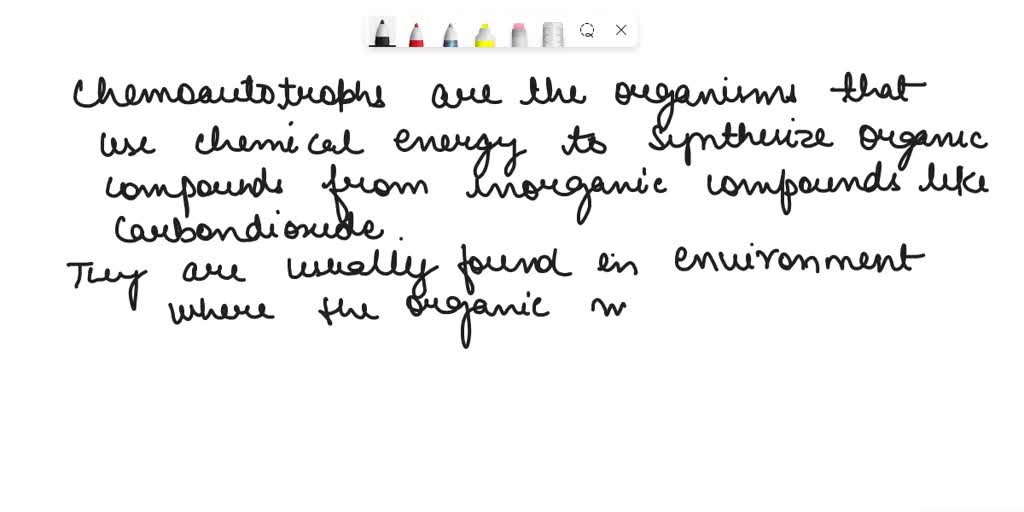 Chemoautotrophs are the organisms that
use chemical energy to synthesize organic
compounds from inorganic compounds like
Carbondioxide.
They are usually found in environment
where the organic